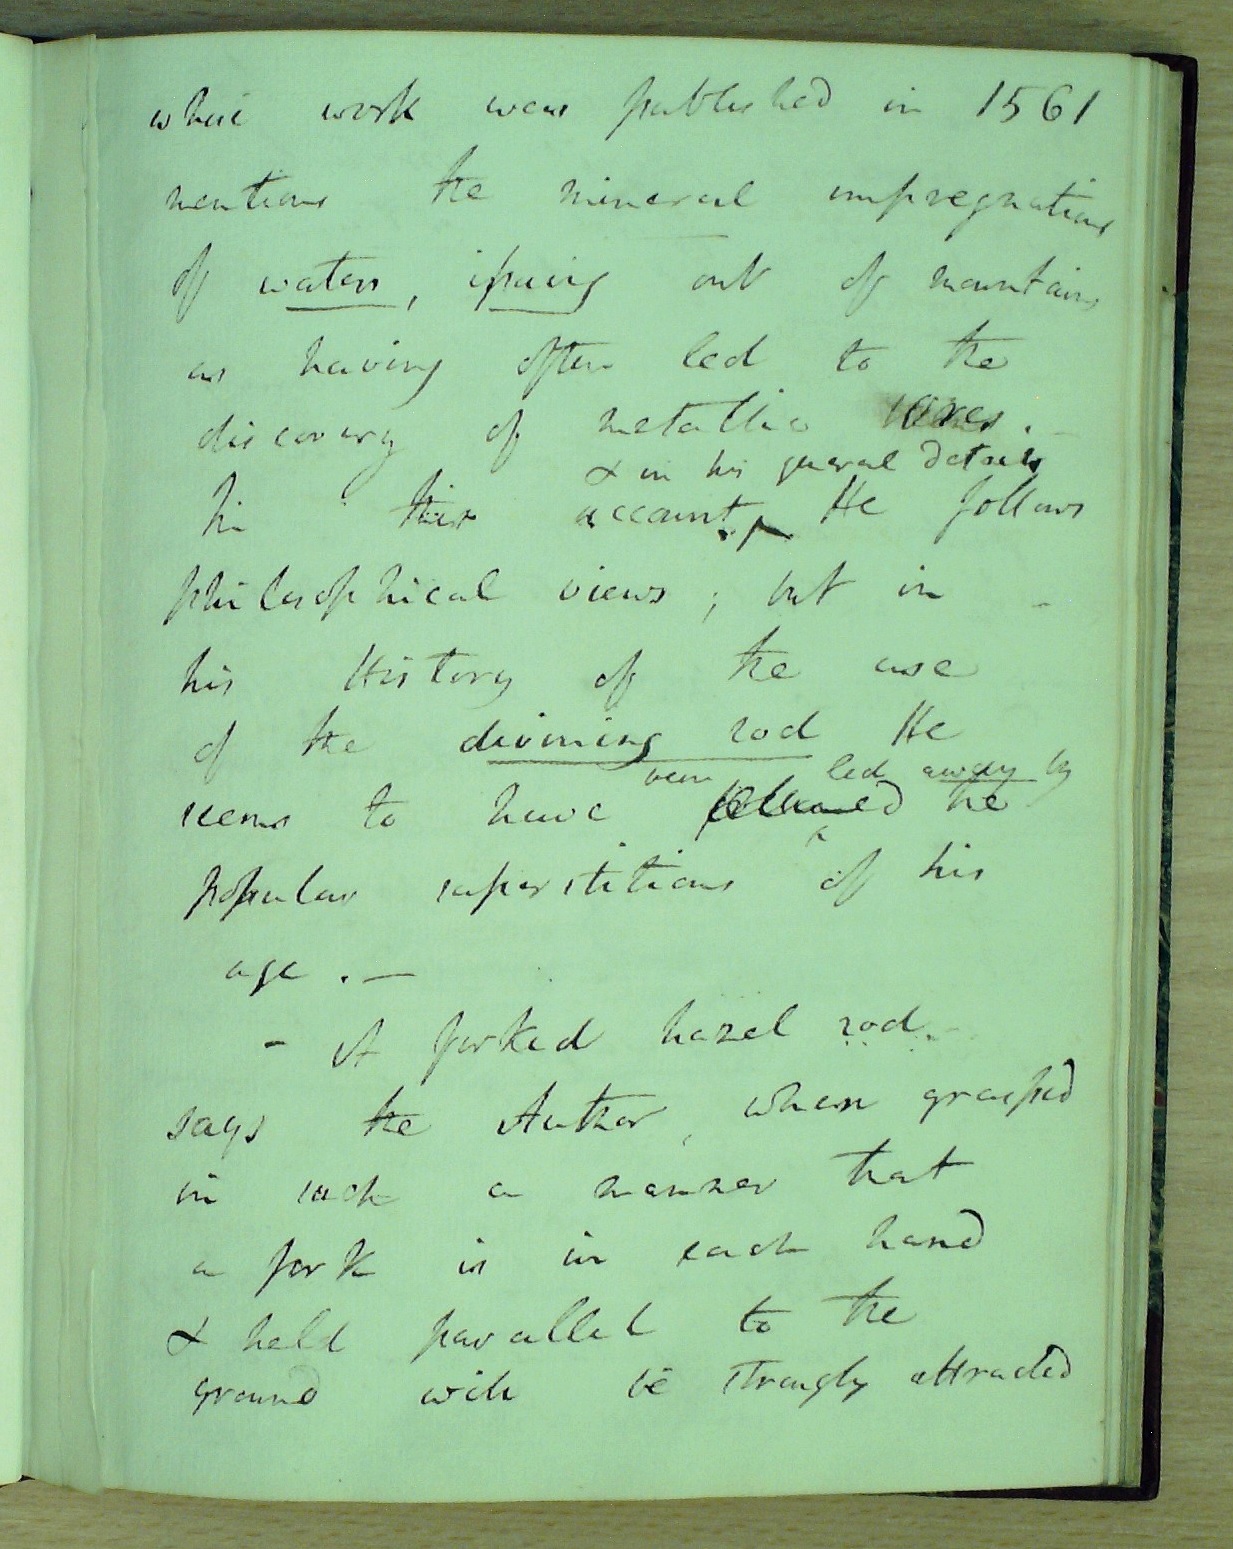 whose work was published in 1561
mentions the mineral impregnations
of waters, issuing out of mountains
as having often led to the
discovery of metallic
& in his general details
In this account He follows
philosophical views; but in
his History of the use
of the divining rod He
been led away by
seems to have the
popular superstitions of his
age. —
- A forked hazel rod
says the Author, when grasped
in such a manner that
a fork is in each hand
& held parallel to the
ground will be strongly attracted